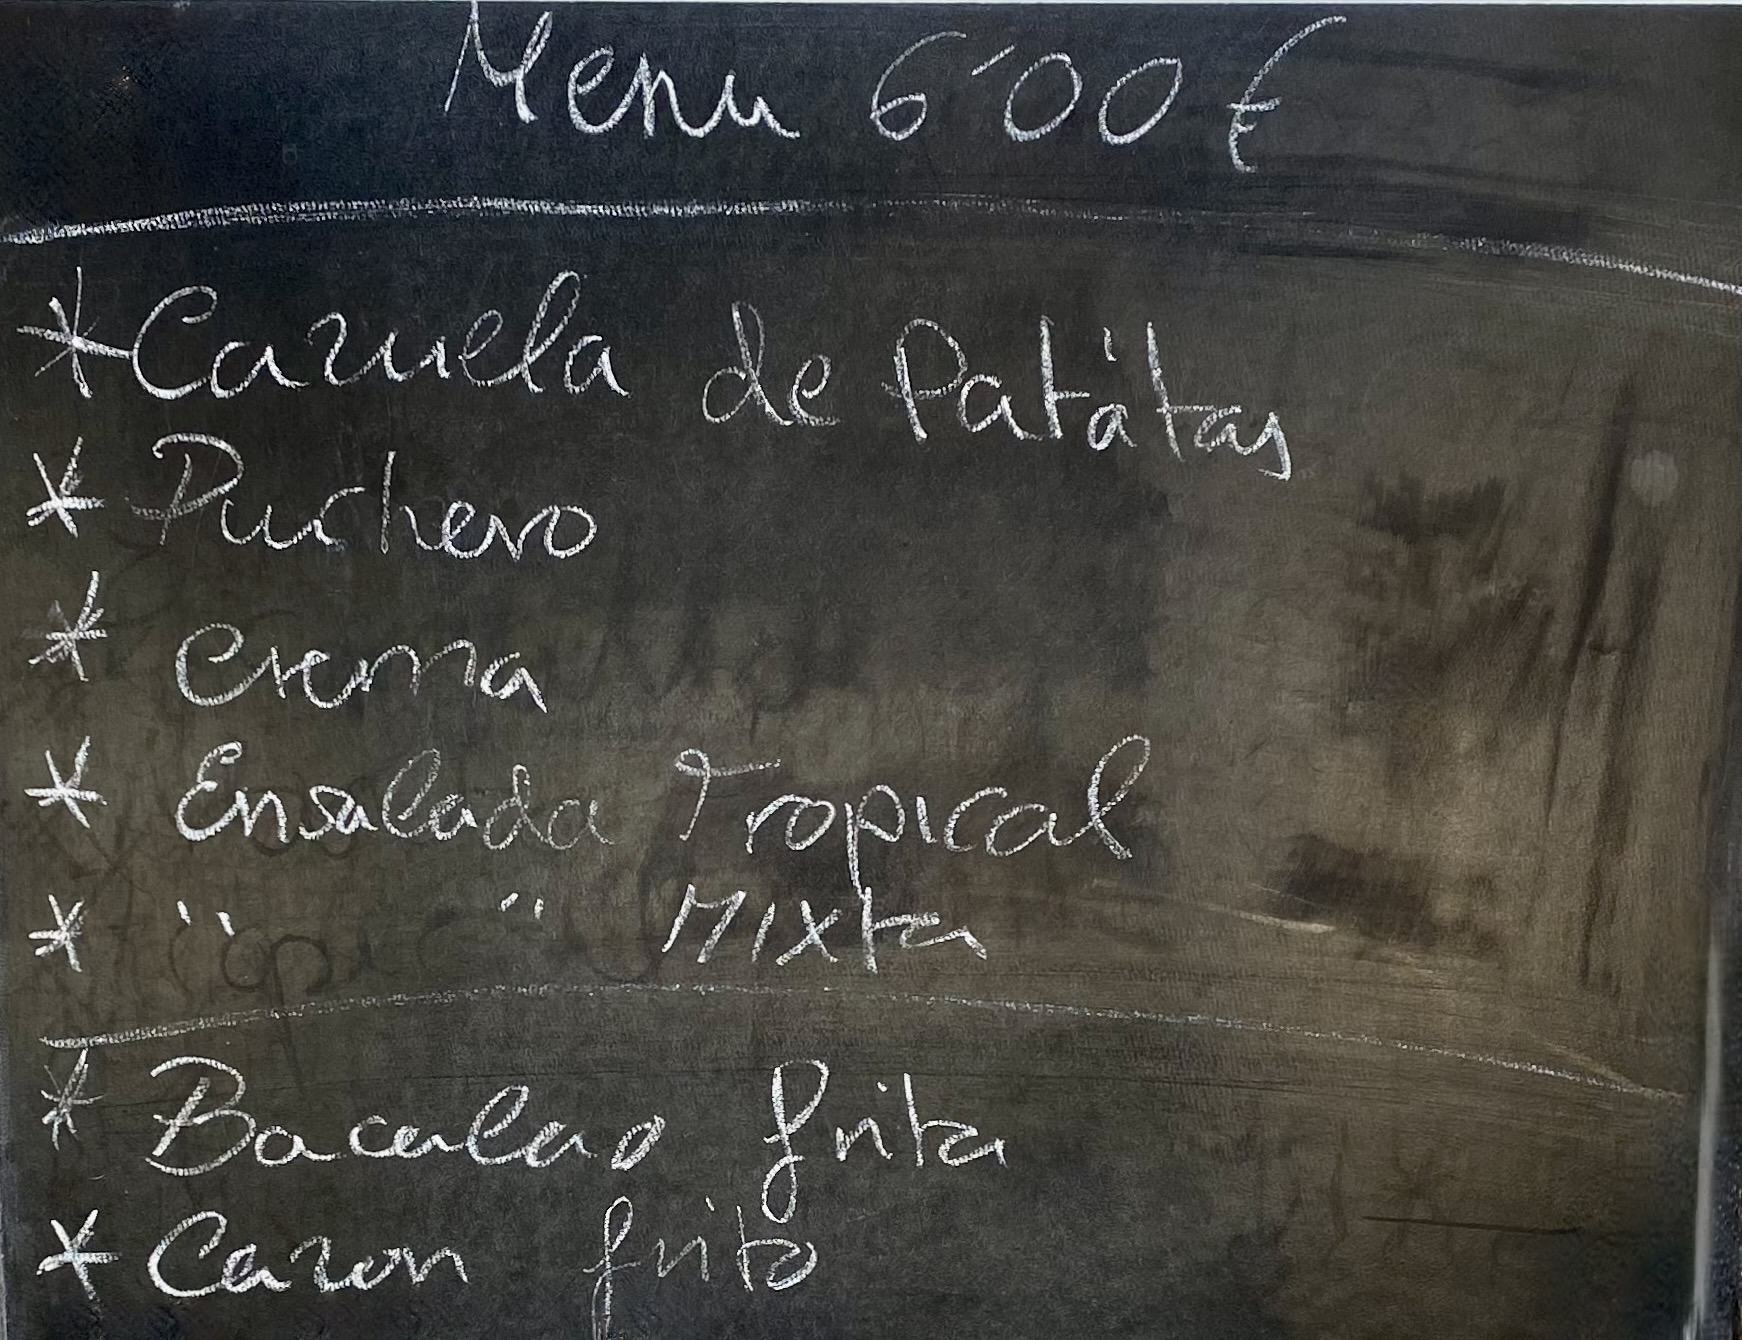 Menu 6´00 €
* Cazuela de Patátas
* Puchero
* Crema
* Ensalada Tropical
* " " Mixta
* Bacalao frita
* Cazon frito